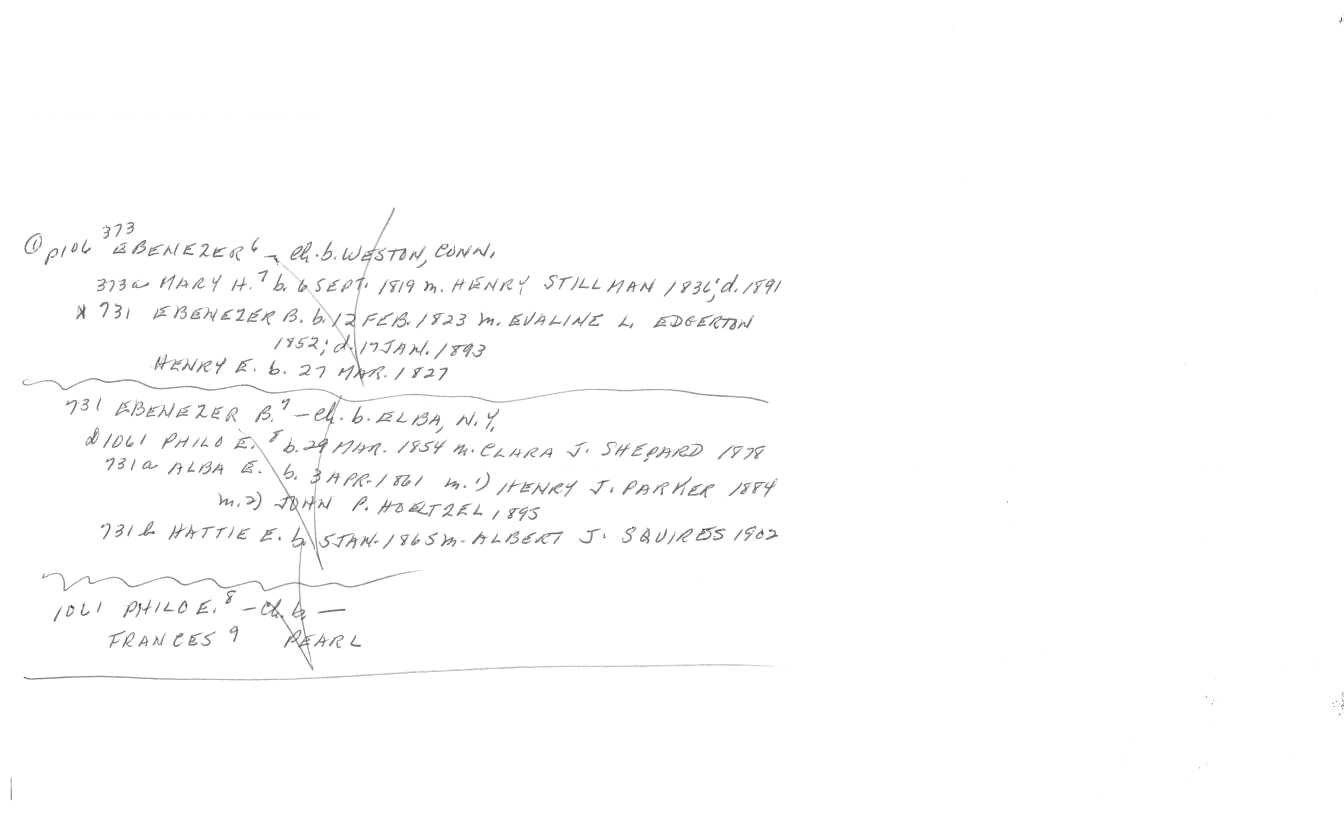 ① p106 373 EBENEZER⁶ - ch. b. WESTON, CONN.
373a MARY H.⁷ b. 6 SEPT. 1819 m. HENRY STILLMAN 1836; d. 1891
* 731 EBENEZER B. b. 12 FEB. 1823 m. EVALINE L. EDGERTON
1852; d. 17 JAN. 1893
HENRY E. b. 27 MAR. 1827
731 EBENEZER B.⁷ - ch. b. ELBA, N.Y.
1061 PHILO E.⁸ b. 29 MAR. 1854 m. CLARA J. SHEPARD 1878
731a ALBA E. b. 3 APR. 1861 m. 1) HENRY J. PARKER 1884
m. 2) JOHN P. HOELTZEL, 1895
731b HATTIE E. b. 5 JAN. 1865 m. ALBERT J. SQUIRES 1902
1061 PHILO E.⁸ - ch. b. —
FRANCES⁹ PEARL